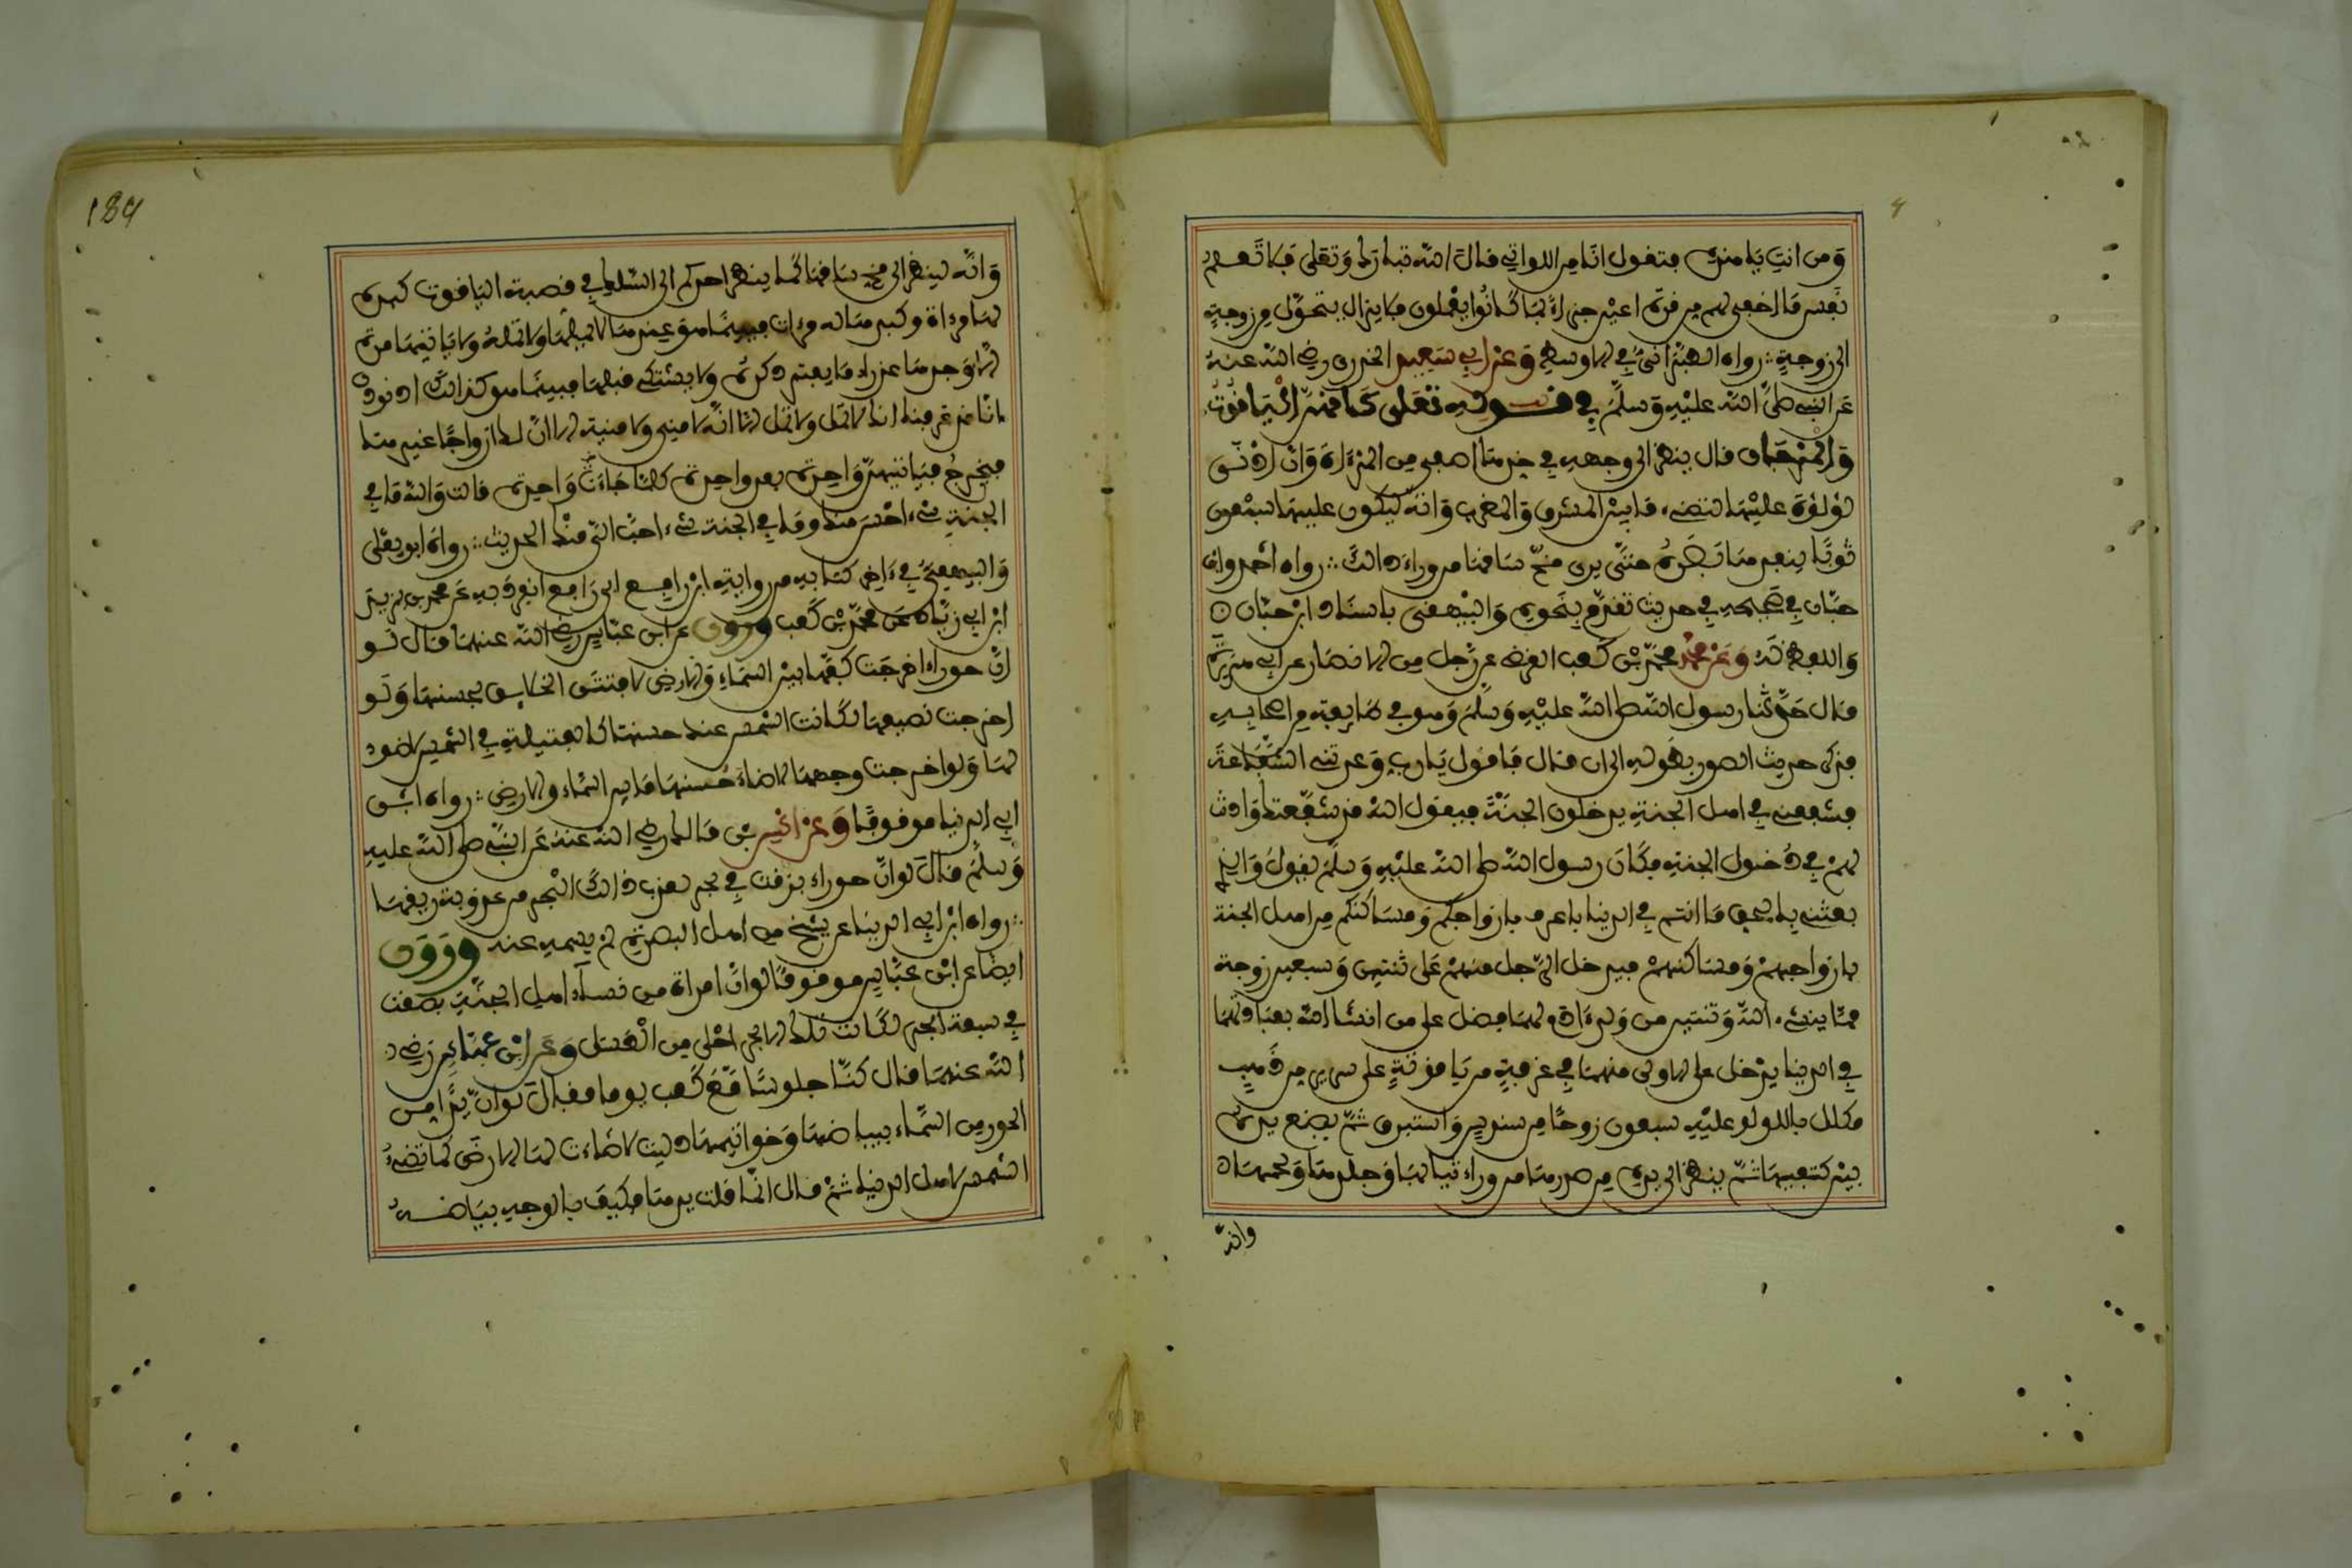 وَمن انتِ يا هذه فتقول انا من اللواتي قال الله تبارك وَتعلى فلا تعلم
نفس ما اخفي لهم من قرة اعين جزاء بما كانوا يعملون فلا يزال يتحوّل من زوجةٍ
الى زوجةٍ رواه الطبراني في الاوسط وَعن ابي سَعيدٍ الخدري رضي الله عنه
عن النبي صلى الله عليه وَسلم في قوله تعلى كأنهن الياقوت
وَالمرجان قال ينظر الى وجهه في خدها اصفى من المرءاة وَان ادنى
لؤلؤة عليها لتضيء ما بين المشرق وَالمغرب وَانه ليكون عليها سبعون
ثوبا ينفدها بصره حتى يرى مخ ساقها من وراء ذالك رواه احمد وابن
حبان في صحيحه في حديث تقدم بنحوه وَالبيهقي باسناد ابن حبان
وَاللفظ له وَعن محمد محمد بن كعب القرظي عن رجل من الانصار عن ابي هريرة
قال حدثنا رسول الله صلى الله عليه وَسلم وَهو في طايفة من اصحابه
فذكر حديث الصور بطوله الى ان قال فاقول يا رب وَعدتني الشفاعة
فشفعني في اهل الجنة يدخلون الجنة فيقول الله قد شفعتك وَاذنت
لهم في دخول الجنة فكان رسول الله صلى الله عليه وَسلم يقول وَالذي
بعثني بالحق ما انتم في الدنيا باعرف بازواجكم وَمساكنكم من اهل الجنة
بازواجهم وَمساكنهم فيدخل الرجل منهم على ثنتين وَسبعين زوجة
مما ينشيء الله وَثنتين من ولد ءادم لهما فضل على من انشا الله بعبادتهما
في الدنيا يدخل على الاولى منهما في غرفةٍ من ياقوتةٍ على سرير من ذهبٍ
مكلل باللولو عليه سبعون زوجا من سندس وَاستبرق ثم يضع يده
بين كتفيها ثم ينظر الى يده من صدرها من وراء ثيابها وَجلدها وَلحمها
وانه
184
وَانه لينظر الى مخ ساقها كما ينظر احدكم الى السلك في قصبة الياقوت كبده
لها مرءاة وكبدها له مرءات فبينما هو عندها لا يملها ولا تمله ولا ياتيها مرة
الا وَجدها عذراء ما يفتر ذكره ولا يشتكي قبلها فبينما هو كذالك اذ نودي
انا قد عرفنا انك لا تمل ولا تمل الا انه لا مني ولا منية الا ان لك ازواجا غيرها
فيخرج فياتيهن وَاحدة بعد واحدة كلما جاءت وَاحدة قالت وَالله ما في
الجنة شيء احسن منك وما في الجنة شيء احب الي منك الحديث رواه ابو يعلى
وَالبيهقي في ءاخر كتابه من رواية ابن رافع ابي رافع انفرد به عن محمد بن يزيد
ابن ابي زياد عن محمد بن كعب وروي عن ابن عباس رضي الله عنهما قال لو
ان حوراء اخرجت كفها بين السماء وَالارض لافتتن الخلايق بحسنها وَلو
اخرجت نصيفها لكانت الشمس عند حسنها كالفتيلة في الشمس لا ضوء
لها وَلو اخرجت وجهها لاضاء حسنها ما بين السماء والارض رواه ابن
ابي الدنيا موقوفا وَعن انس بن مالك رضي الله عنه عن النبي صلى الله عليه
وَسلم قال لو ان حوراء بزقت في بحر لعذب ذالك البحر من عذوبة ريقها
رواه ابن ابي الدنيا عن شيخ من اهل البصرة لم يسمه عنه وروي
ايضا عن ابن عباس موقوفا لو ان امراة من نساء اهل الجنة بصقت
في سبعة ابحر لكانت تلك الابحر احلى من العسل وَعن ابن عباس رضي
الله عنهما قال كنا جلوسا مع كعب يوما فقال لو ان يدا من
الحور من السماء ببياضها وَخواتيمها دليت لاضاءت لها الارض كما تضيء
الشمس لاهل الدنيا ثم قال انما قلت يدها فكيف بالوجه بياضه